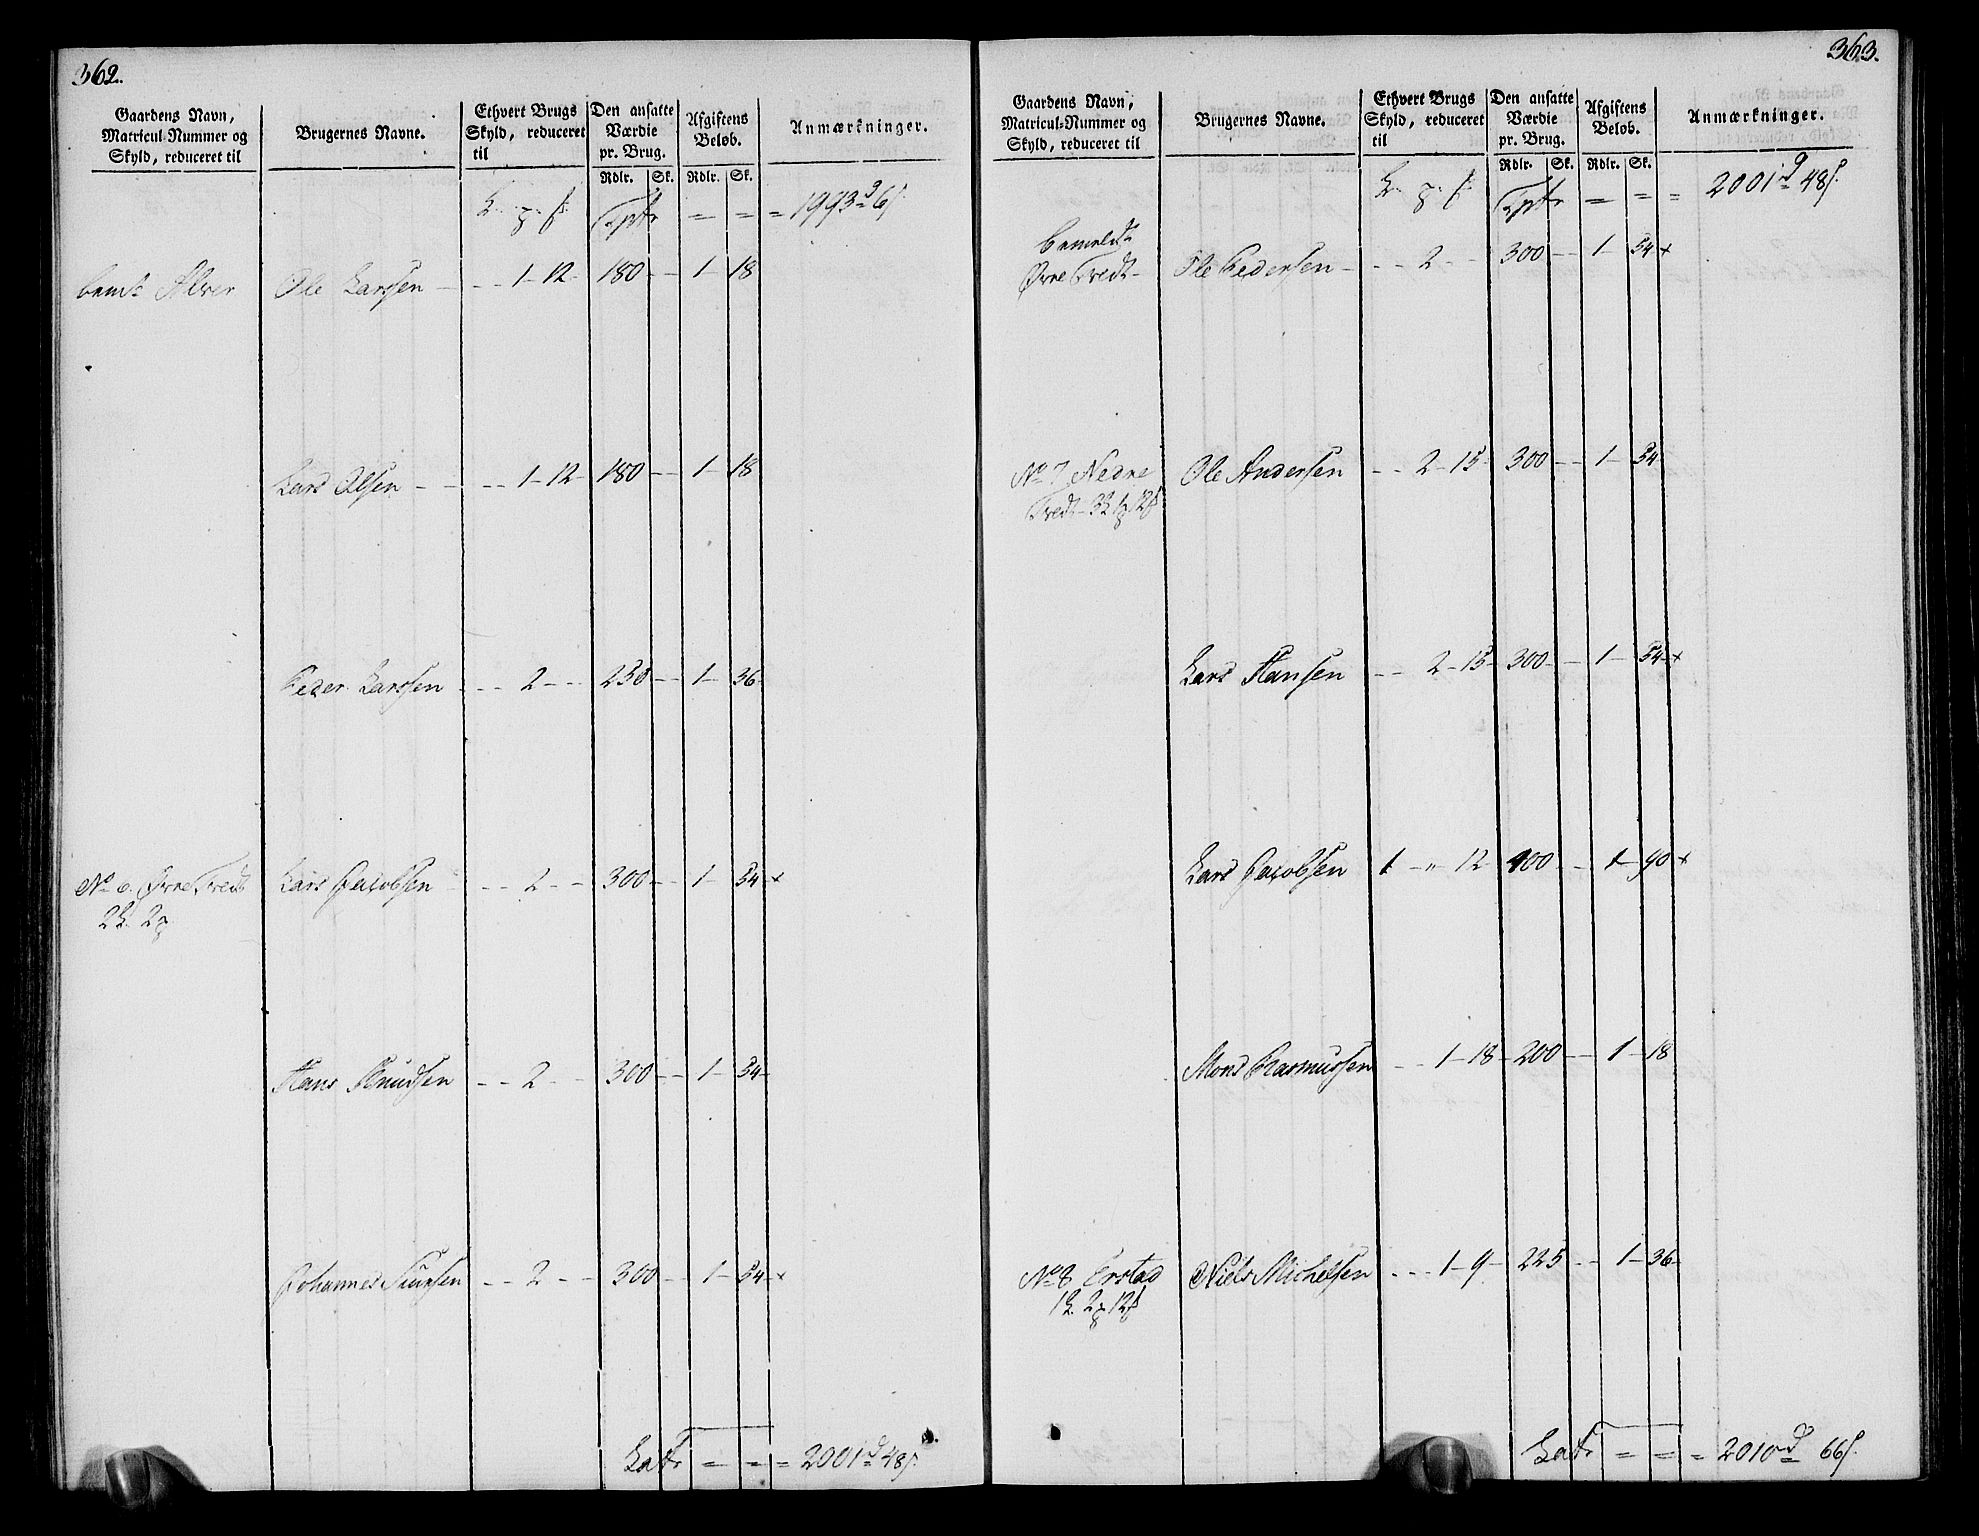 362.
Gaardens Navn, Matricul-Nummer og Skyld, reduceret til | Brugernes Navne. | Ethvert Brugs Skyld, reduceret til | Den ansatte Værdie pr. Brug. | Afgiftens Beløb. | Anmærkninger.
Rdlr. Sk. Rdlr. Sk.
Tptr = = = 1993 d 6 s.
bem.te Alver Ole Larssen - - - 1-12- 180 - - 1 - 18
Lars Olsen - - - - 1-12- 180 - - 1 - 18
Peder Larssen - - - 2 - - 250 - - 1 - 36-
No 6. Øvre Tvedt Lars Jacobsen - - 2 - - 300 - - 1 - 54 x
2L. 2p
Hans Knudsen - - 2 - - 300 - - 1 - 54-
Johannes Simsen - - 2 - - 300 - - 1 - 54 x
Latr = = = 2001 d 48 s.
363.
Gaardens Navn, Matricul-Nummer og Skyld, reduceret til | Brugernes Navne. | Ethvert Brugs Skyld, reduceret til | Den ansatte Værdie pr. Brug. | Afgiftens Beløb. | Anmærkninger.
Rdlr. Sk. Rdlr. Sk.
Tptr = = = 2001 d 48 s.
bemeldte
Øvre Tvedt- Ole Pedersen - - - 2 - - 300 - - 1 - 54 x
No 7 Nedre Ole Andersen - - 2-15 - 300 - - 1 - 54
Tvedt- 3L 1p 12s
Lars Hansen - - 2-15- 300 - - 1 - 54 x
Lars Jacobsen 1 - " 12 - 400 - - 1 - 90 x
Mons Rasmussen - - 1-18 - 200 - - 1 - 18
No 8 Erstad Niels Michelsen - - - 1-9 - 225 - - 1 - 36-
1L. 2p 12s
Latr = = = 2010 d 66 s.